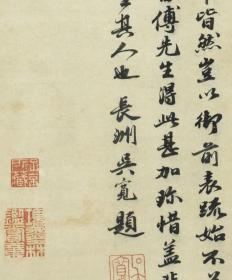 皆然豈以御前表疏始不
傅先生得此甚加珍惜蓋
其人也長洲吳寬題